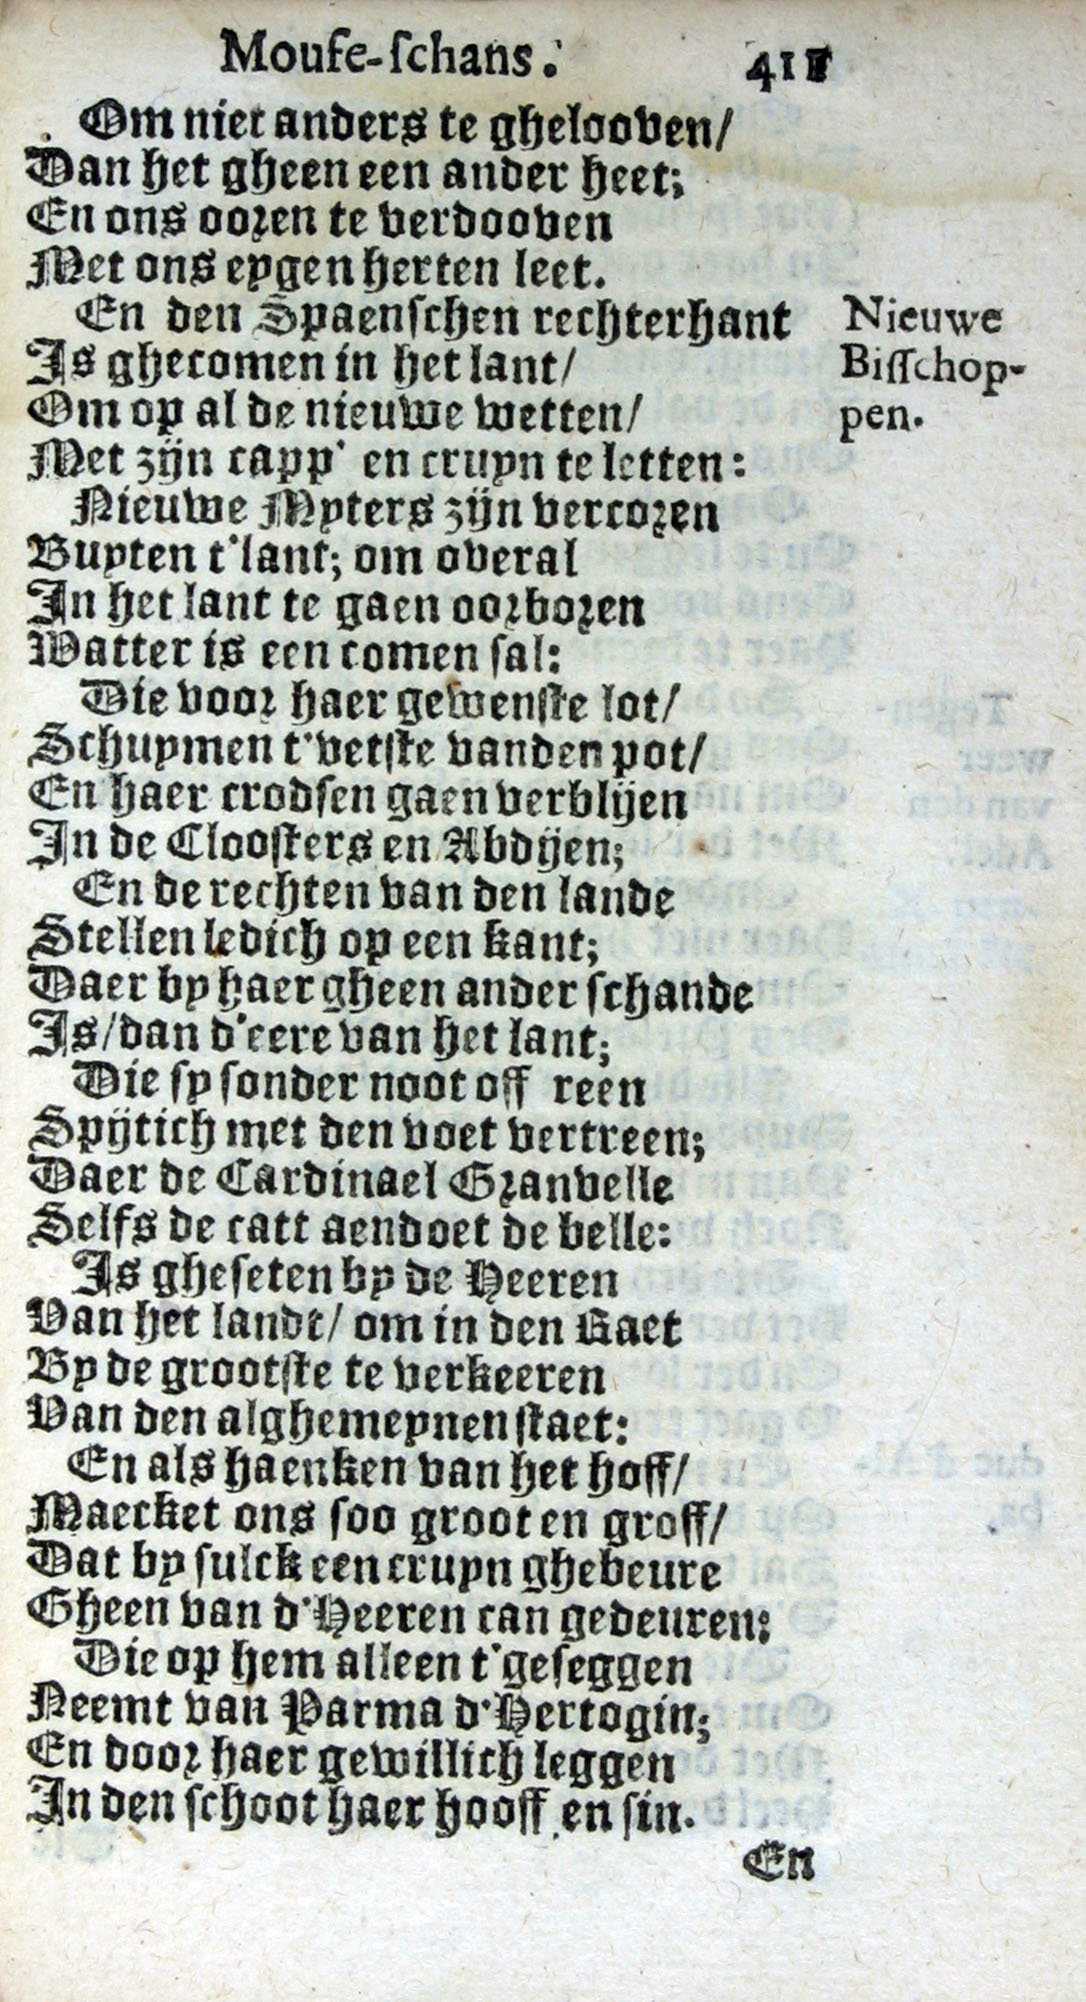 Mouse-schans. 411
Om niet anders te ghelooven/
Dan het gheen een ander heet;
En ons ooren te verdooven
Met ons eygen herten leet.
En den Spaenschen rechterhant
Is ghecomen in het lant/
Om op al de nieuwe wetten/
Met zijn capp' en cruyn te letten:
Nieuwe Myters zijn vercoren
Buyten t'lant; om overal
In het lant te gaen oorboren
Watter is een comen sal:
Die voor haer gewenste lot/
Schuymen t'vetste vanden pot/
En haer crodsen gaen verblijen
In de Cloosters en Abdijen;
En de rechten van den lande
Stellen ledich op een kant;
Daer by haer gheen ander schande
Is/dan d'eere van het lant;
Die sy sonder noot off reen
Spijtich met den voet vertreen;
Daer de Cardinael Granvelle
Selfs de catt aendoet de belle:
Is gheseten by de Heeren
Van het landt/ om in den Raet
By de grootste te verkeeren
Van den alghemeynen staet:
En als haenken van het hoff/
Maecket ons soo groot en groff/
Dat by sulck een cruyn ghebeure
Gheen van d'Heeren can gedeuren:
Die op hem alleen t'geseggen
Neemt van Parma d'Hertogin;
En door haer gewillich leggen
In den schoot haer hooff en sin.
En
Nieuwe
Bisschop-
pen.